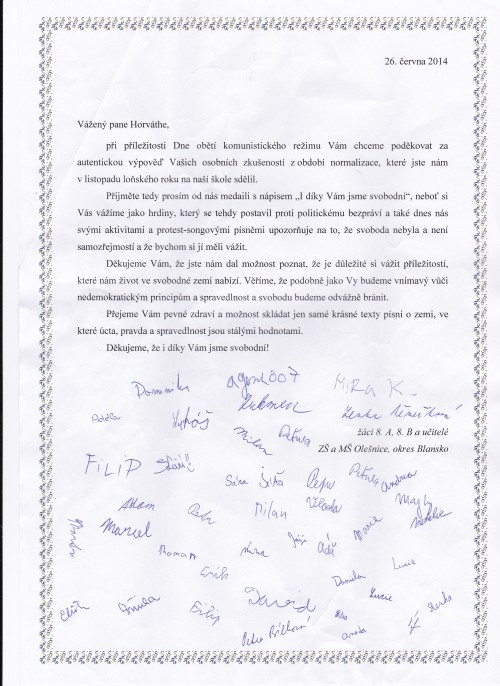 26. června 2014
Vážený pane Horváthe,
při příležitosti Dne obětí komunistického režimu Vám chceme poděkovat za
autentickou výpověď Vašich osobních zkušeností z období normalizace, které jste nám
v listopadu loňského roku na naší škole sdělil.
Přijměte tedy prosím od nás medaili s nápisem „I díky Vám jsme svobodní“, neboť si
Vás vážíme jako hrdiny, který se tehdy postavil proti politickému bezpráví a také dnes nás
svými aktivitami a protest-songovými písněmi upozorňuje na to, že svoboda nebyla a není
samozřejmostí a že bychom si jí měli vážit.
Děkujeme Vám, že jste nám dal možnost poznat, že je důležité si vážit příležitostí,
které nám život ve svobodné zemi nabízí. Věříme, že podobně jako Vy budeme vnímavý vůči
nedemokratickým principům a spravedlnost a svobodu budeme odvážně bránit.
Přejeme Vám pevné zdraví a možnost skládat jen samé krásné texty písní o zemi, ve
které úcta, pravda a spravedlnost jsou stálými hodnotami.
Děkujeme, že i díky Vám jsme svobodní!
Dominika agent007 MíRA K.
Adéla Lukáš
Milan Petra
žáci 8. A, 8. B a učitelé
ZŠ a MŠ Olešnice, okres Blansko
FILIP
Sára Jitka Pepa Petra Andrea
Adam Milan Vlasta Magdy
Marcel Marie Natálie
Roman
Erik Daniela Lucie
Filip David Lucie Lenka
Petra